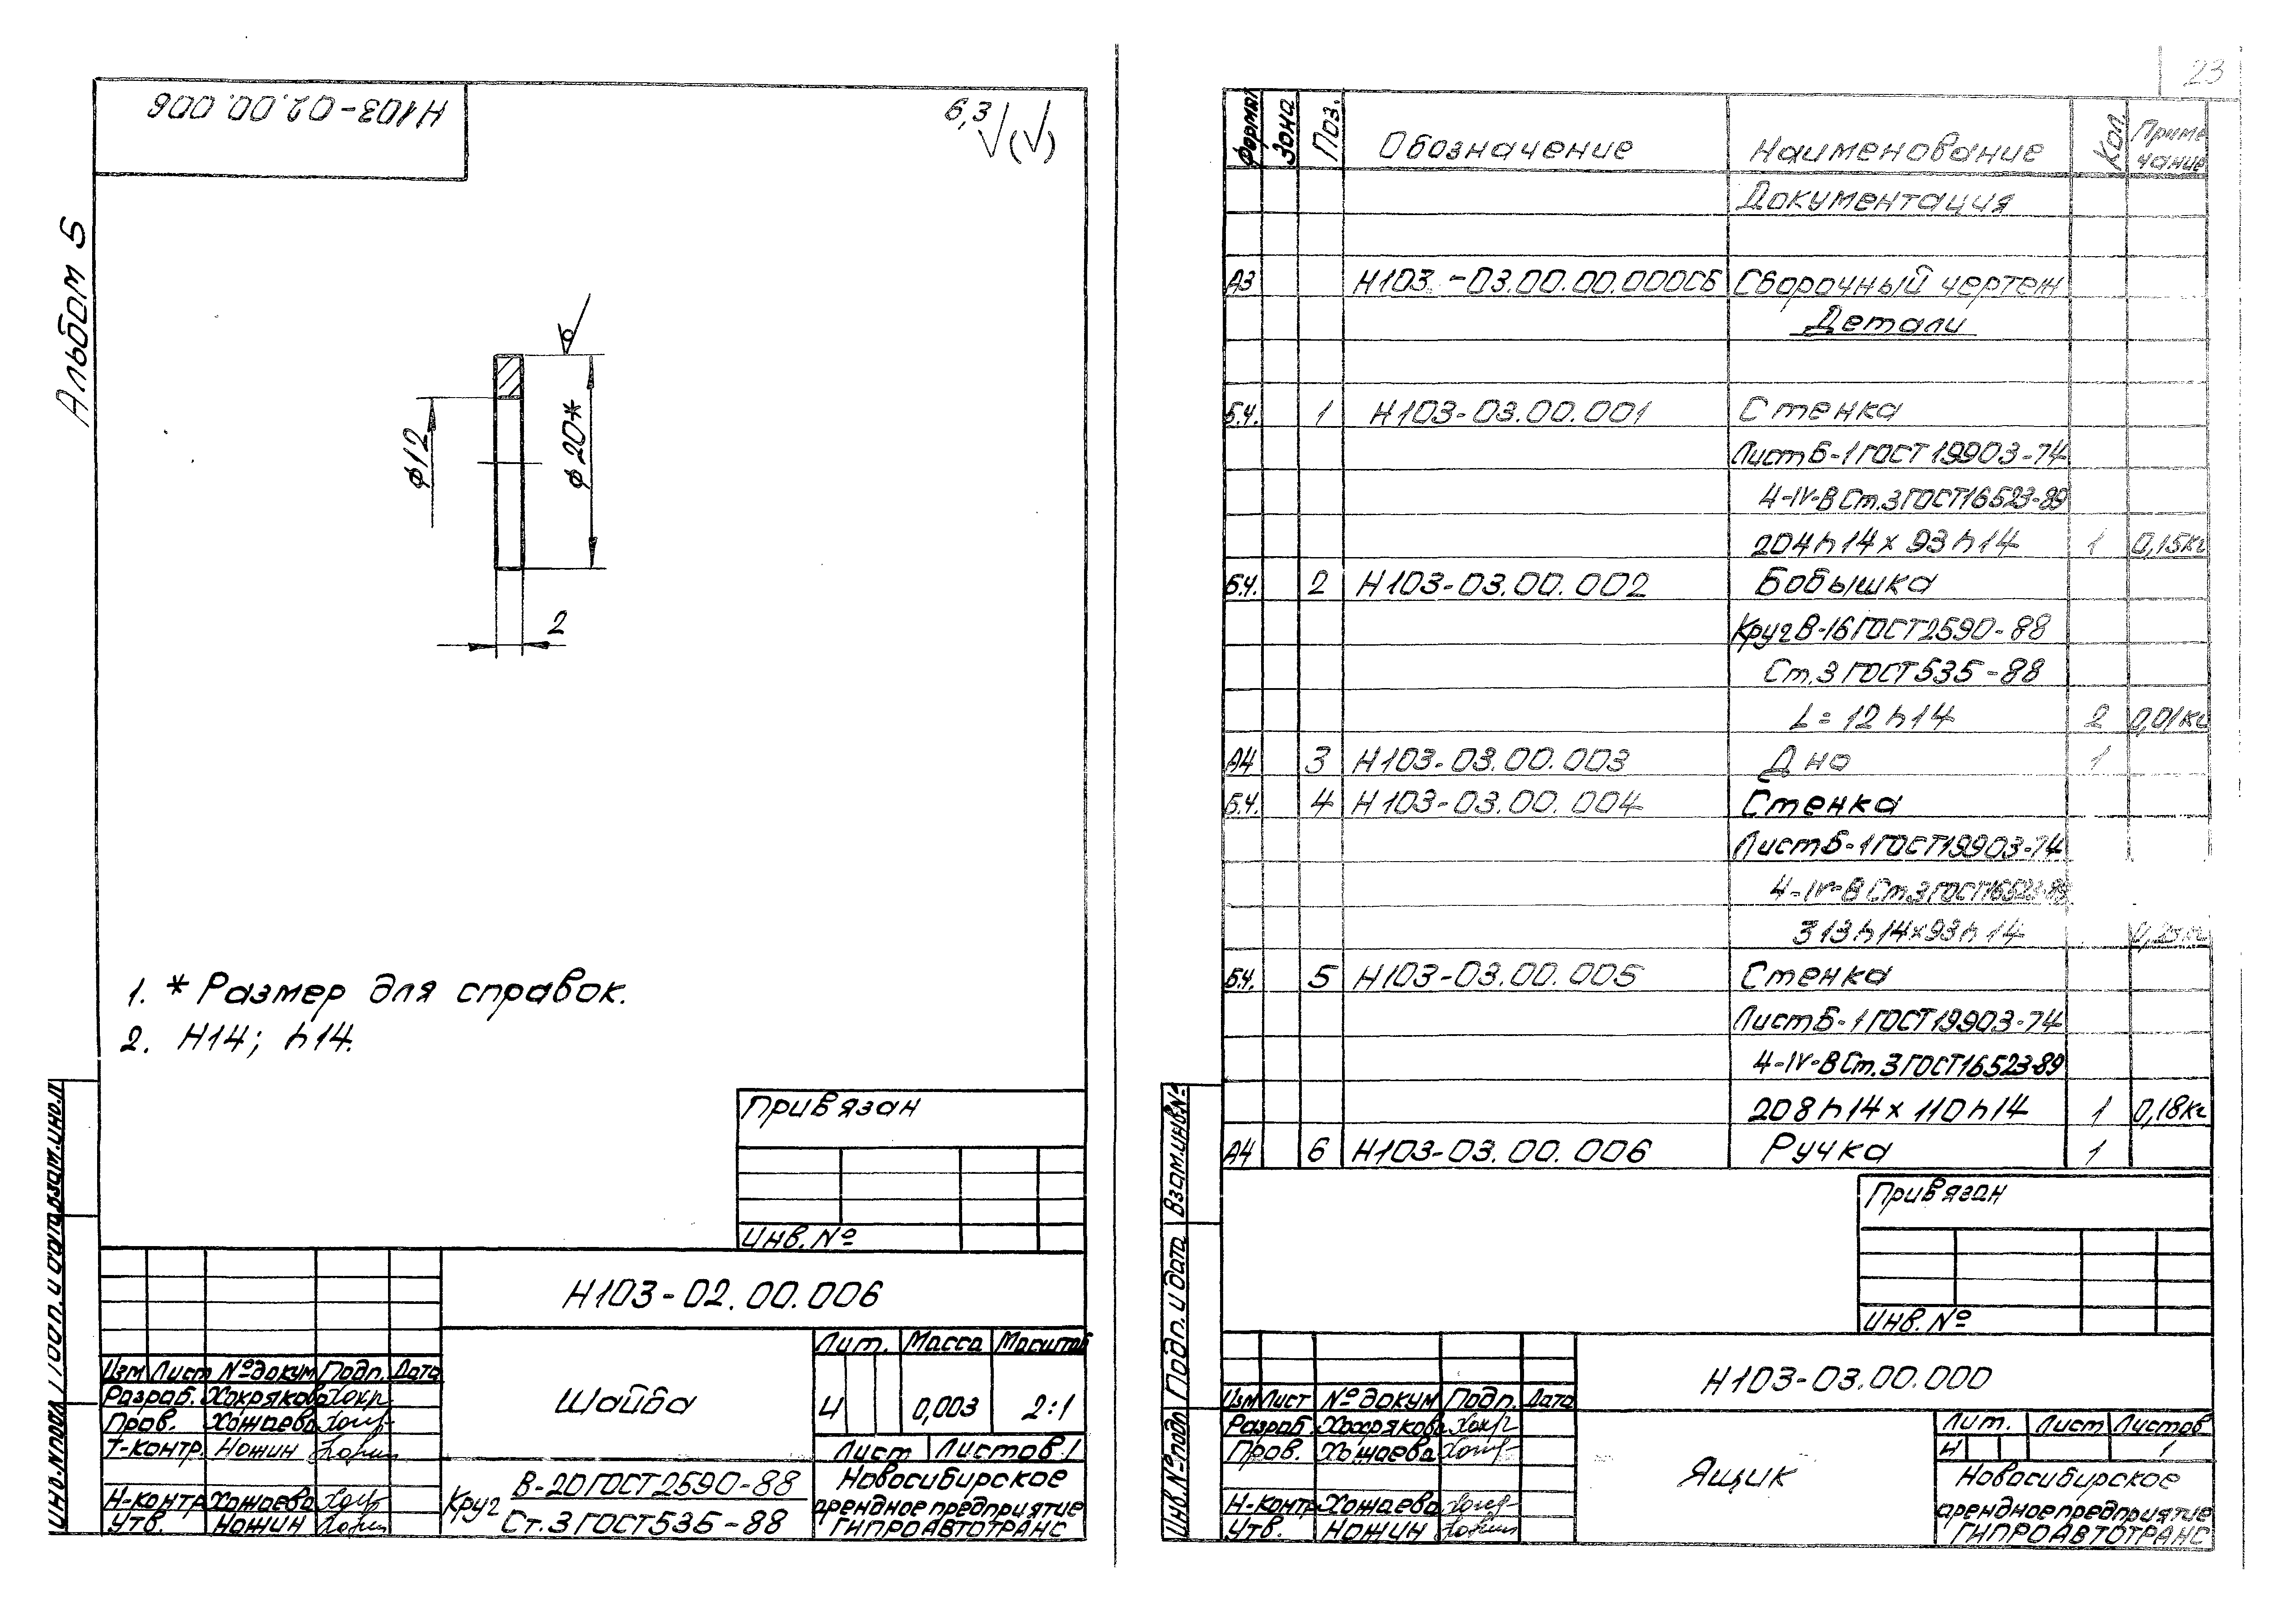 Н103-02.00.006
6,3
(√)
Альбом 5
⌀12
⌀20*
2
1. * Размер для справок.
2. Н14; h14.
Привязан
Инв.№
Н103-02.00.006
Изм Лист №докум Подп. Дата
Разраб. Хохрякова
Пров. Хожаева
Т-контр. Ножин
Н-контр Хожаева
Утв. Ножин
Шайба
Лит. Масса Масштаб
И 0,003 2:1
Лист Листов 1
Круг В-20 ГОСТ 2590-88
Ст.3 ГОСТ 535-88
Новосибирское
арендное предприятие
ГИПРОАВТОТРАНС
Инв.№подл Подп. и дата Взам.инв.№
23
Формат Зона Поз. Обозначение Наименование Кол. Приме
чание
Документация
А3 Н103-03.00.00.000СБ Сборочный чертеж
Детали
Б.Ч. 1 Н103-03.00.001 Стенка
Лист Б-1 ГОСТ 19903-74
4-IV-В Ст.3 ГОСТ 16523-89
204h14 х 93h14 1 0,15кг
Б.Ч. 2 Н103-03.00.002 Бобышка
Круг В-16 ГОСТ 2590-88
Ст.3 ГОСТ 535-88
L = 12h14 2 0,01кг
А4 3 Н103-03.00.003 Дно 1
Б.Ч. 4 Н103-03.00.004 Стенка
Лист Б-1 ГОСТ 19903-74
4-IV-В Ст.3 ГОСТ 16523-89
313h14х93h14
Б.Ч. 5 Н103-03.00.005 Стенка
Лист Б-1 ГОСТ 19903-74
4-IV-В Ст.3 ГОСТ 16523-89
208h14 х 110h14 1 0,18кг
А4 6 Н103-03.00.006 Ручка 1
Привязан
Инв. №
Н103-03.00.000
Изм Лист № докум Подп. Дата
Разраб Хохрякова
Пров. Хожаева
Н-контр Хожаева
Утв. Ножин
Ящик
Лит. Лист Листов
И 1
Новосибирское
арендное предприятие
ГИПРОАВТОТРАНС
Инв.№подл Подп. и дата Взам.инв.№